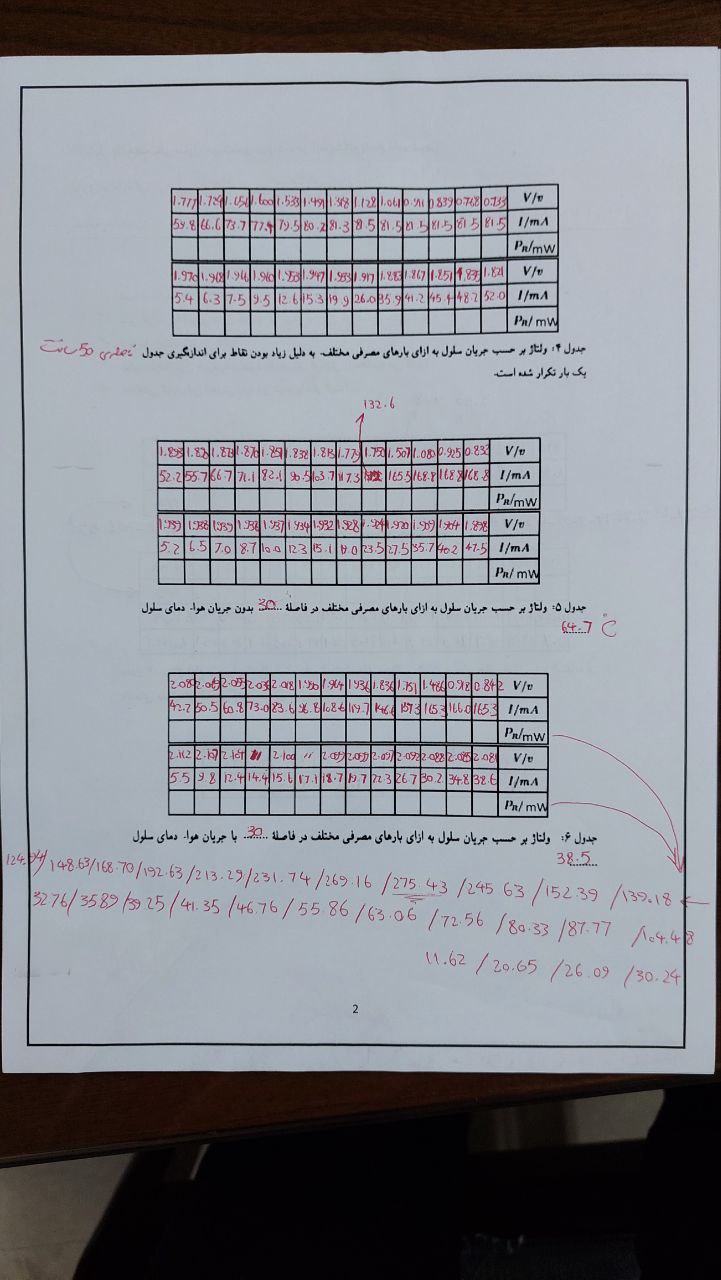 1.777 1.729 1.656 1.600 1.533 1.491 1.318 1.128 1.061 0.911 0.839 0.768 0.733 V/v
59.8 66.6 73.7 77.4 79.5 80.2 81.3 81.5 81.5 81.5 81.5 81.5 81.5 I/mA
P_R/mW
1.970 1.968 1.966 1.960 1.953 1.947 1.933 1.917 1.883 1.867 1.851 1.835 1.821 V/v
5.4 6.3 7.5 9.5 12.6 15.3 19.9 26.0 35.9 41.2 45.4 48.2 52.0 I/mA
P_R/mW
جدول ۴: ولتاژ بر حسب جریان سلول به ازای بارهای مصرفی مختلف. به دلیل زیاد بودن نقاط برای اندازه‌گیری جدول
یک بار تکرار شده است.
132.6
1.895 1.890 1.878 1.870 1.851 1.838 1.813 1.779 1.750 1.507 1.080 0.925 0.833 V/v
52.2 55.7 66.7 71.1 82.1 90.5 103.7 117.3 165.5 168.8 168.8 168.8 I/mA
P_R/mW
1.939 1.938 1.939 1.938 1.937 1.934 1.932 1.928 1.924 1.920 1.909 1.904 1.898 V/v
5.2 6.5 7.0 8.7 10.0 12.3 15.1 19.0 23.5 27.5 35.7 40.2 47.5 I/mA
P_R/mW
جدول ۵: ولتاژ بر حسب جریان سلول به ازای بارهای مصرفی مختلف در فاصلهٔ 30 بدون جریان هوا. دمای سلول
64.7 °C
2.036 2.018 1.964 1.936 1.836 1.751 1.486 0.918 0.842 V/v
42.2 50.5 60.8 73.0 83.6 96.8 108.6 119.7 146.6 157.3 165.3 166.0 165.3 I/mA
P_R/mW
2.112 2.107 2.104 " 2.100 " 2.099 2.099 2.097 2.092 2.088 2.085 2.081 V/v
5.5 9.8 12.4 14.4 15.6 17.1 18.7 19.7 22.3 26.7 30.2 34.8 38.6 I/mA
P_R/mW
جدول ۶: ولتاژ بر حسب جریان سلول به ازای بارهای مصرفی مختلف در فاصلهٔ 30 با جریان هوا. دمای سلول
38.5
148.63/168.70/192.63/213.29/231.74/269.16/275.43/245 63/152.39/139.18
32.76/35.89/39.25/41.35/46.76/55.86/63.06/72.56/80.33/87.77/104.48
11.62/20.65/26.09/30.24
2